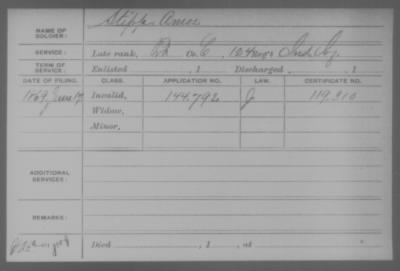 NAME OF SOLDIER: Stipp, Amos
SERVICE: Late rank, Co. C, Ind
TERM OF SERVICE: Enlisted , 1 Discharged , 1
DATE OF FILING. CLASS. APPLICATION NO. LAW. CERTIFICATE NO.
1869, June 17 Invalid, 144,792 119,310
Widow,
Minor,
ADDITIONAL SERVICES:
REMARKS:
Died , 1 , at